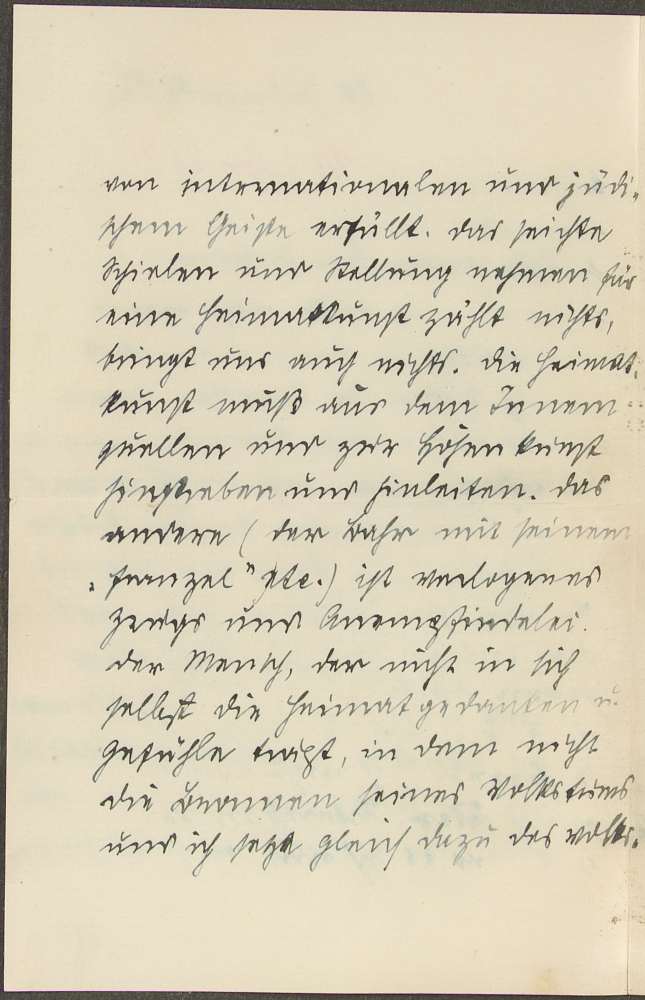 von internationalen und jüdi-
schem Geiste erfüllt. das seichte
Schielen und Stellung nehmen für
eine Heimatkunst zählt nichts,
bringt uns auch nichts. die Heimat-
kunst muß aus dem Innern
quellen und zur hohen Kunst
und hinleiten. das
andere (der Bahr mit seinem
„Franzel" etc.) ist verlogenes
Zeugs und Anempfindelei.
der Mensch, der nicht in sich
selbst die Heimatgedanken u.
Gefühle trägt, in dem nicht
die Bronnen seines Volkstums
und ich sage gleich dazu des Volks-